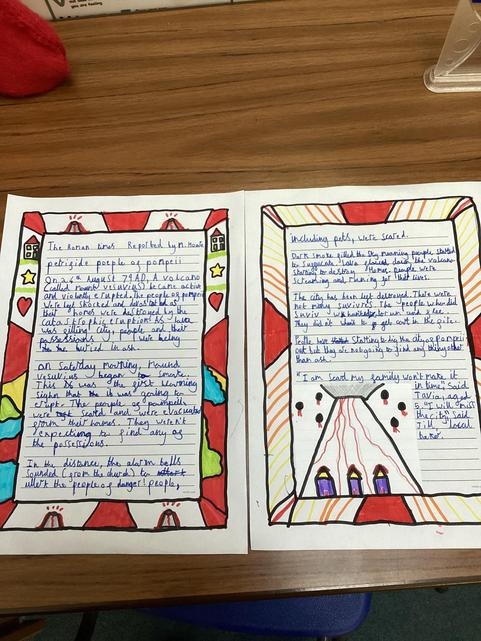 you are feeling
The Roman times Reported by M. Hoate
petrigide poeple of pompeii
On 24th August 79AD, A volcano
Called mount vesuvius became active
and violently erupted. The people of pompeii
were left shocked and devastated as
their homes were destroyed by the
catastrophic eruption! As lava
was filling city people and their
possessions were being
buried in ash.
on Saturday morning, Mound
vicuvius began to smoke.
This was the first warning
sign that it was going to
erupt. The people of pompeii
were scard and were evacuated
from their homes. They weren't
expecting to find any of
the possessions.
In the distance, the alarm bells
sounded (from the church) to
alert the people of danger. people,
including pets, were scared.
Dark smoke filled the sky meaning people started
to suffocate. Lava flowed down the volcano
starting to destroy Homes. people were
screaming and running for their lives.
The city has been left destroyed. There were
not many survivers. The people who did
surviv
They did not want to go back in the
Poeple have Starting to dig the city of pompeii
out but they are not going to find anything other
than ash.
"I am scard my family won't make it
in time", said
Tavia, aged
5. "I will miss
the city" said
Jill, local
baker.